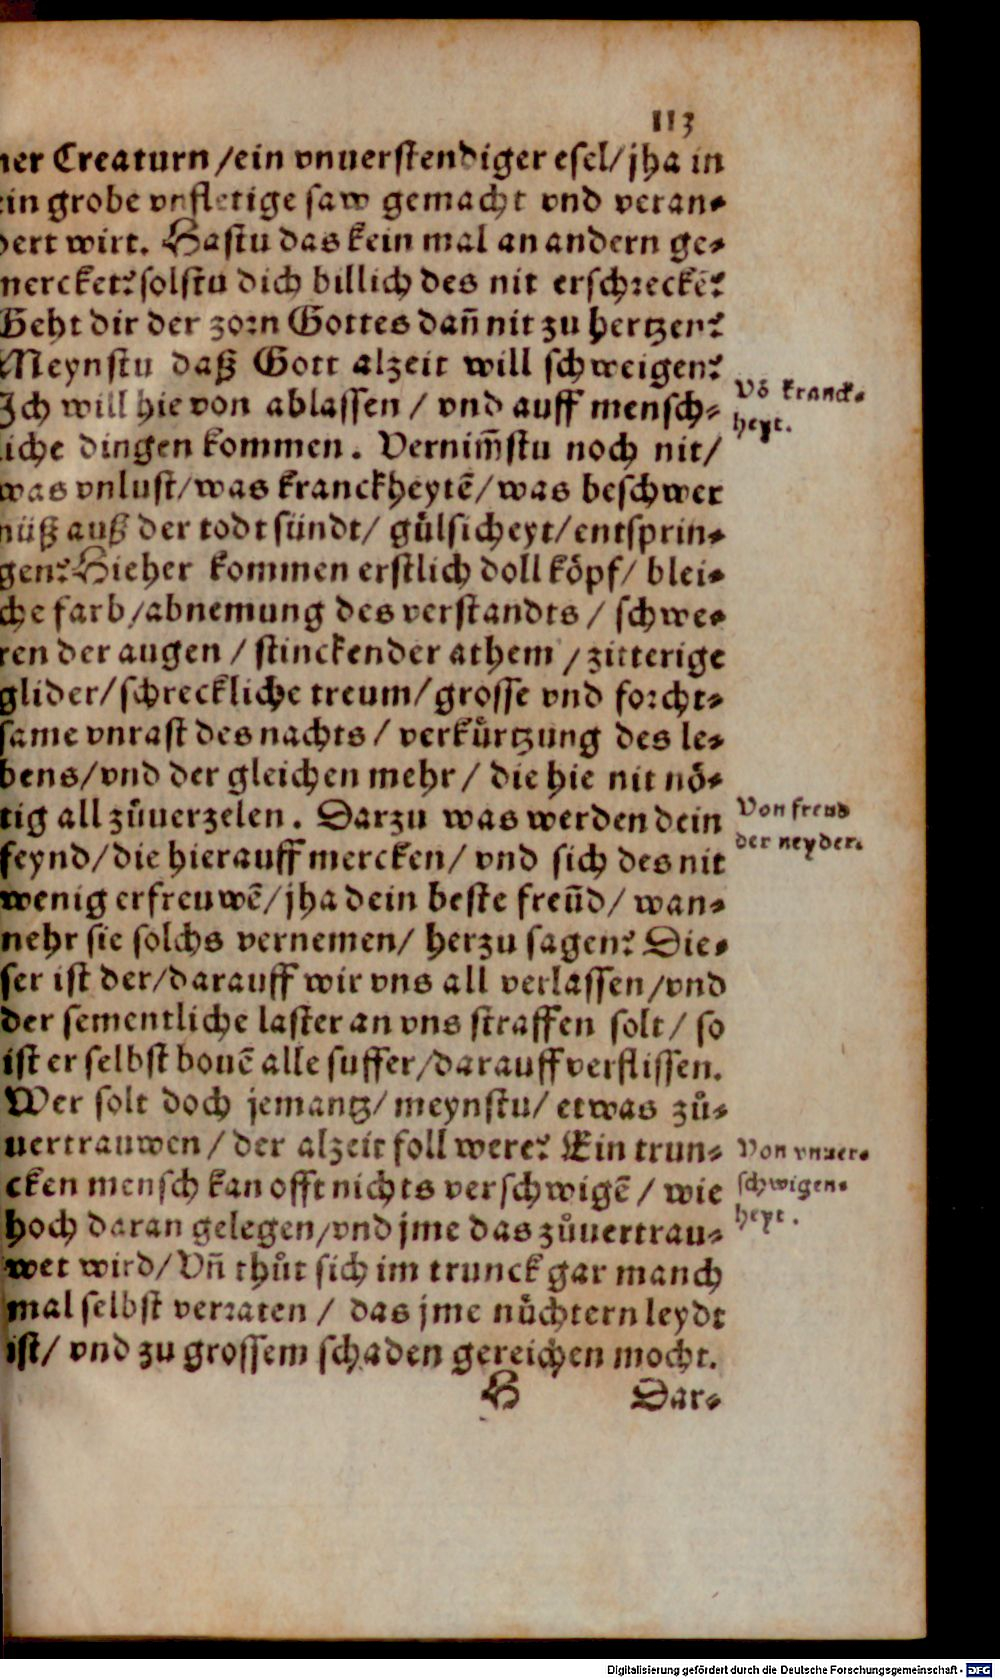 113
ner Creaturn/ein vnuerstendiger esel/jha in
ein grobe vnfletige saw gemacht vnd veran-
dert wirt. Hastu das kein mal an andern ge-
mercket? solstu dich billich des nit erschreckē?
Geht dir der zorn Gottes dañ nit zu hertzen?
Meynstu daß Gott alzeit will schweigen?
Ich will hie von ablassen / vnd auff mensch-
liche dingen kommen. Vernim̄stu noch nit/
was vnlust/was kranckheytē/was beschwer
nüß auß der todt sündt/ gůlsicheyt/entsprin-
gen? Hieher kommen erstlich doll köpf/ blei-
che farb/abnemung des verstandts / schwe-
ren der augen / stinckender athem / zitterige
glider/schreckliche treum/grosse vnd forcht-
same vnrast des nachts/ verkürtzung des le-
bens/vnd der gleichen mehr/ die hie nit nö-
tig all zůuerzelen. Darzu was werden dein
feynd/die hierauff mercken/ vnd sich des nit
wenig erfreuwē/jha dein beste freũd/ wan-
nehr sie solchs vernemen/ herzu sagen? Die-
ser ist der/darauff wir vns all verlassen/vnd
der sementliche laster an vns straffen solt/ so
ist er selbst bouē alle suffer/darauff verflissen.
Wer solt doch jemantz/meynstu/ etwas zů-
uertrauwen/ der alzeit foll were? Ein trun-
cken mensch kan offt nichts verschwigē/ wie
hoch daran gelegen/vnd jme das zůuertrau-
wet wird/ Vñ thůt sich im trunck gar manch
mal selbst verraten / das jme nůchtern leydt
ist/ vnd zu grossem schaden gereichen mocht.
H Dar-
Vō kranck-
heyt.
Von freud
der neyder.
Von vnuer-
schwigen-
heyt.
Digitalisierung gefördert durch die Deutsche Forschungsgemeinschaft - DFG